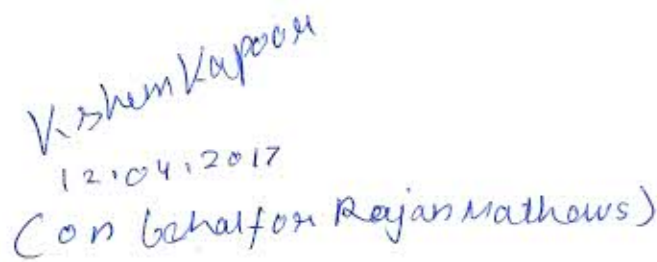 Kshem Kapoor
12.04.2017
(on behalf or Rajan Mathews)